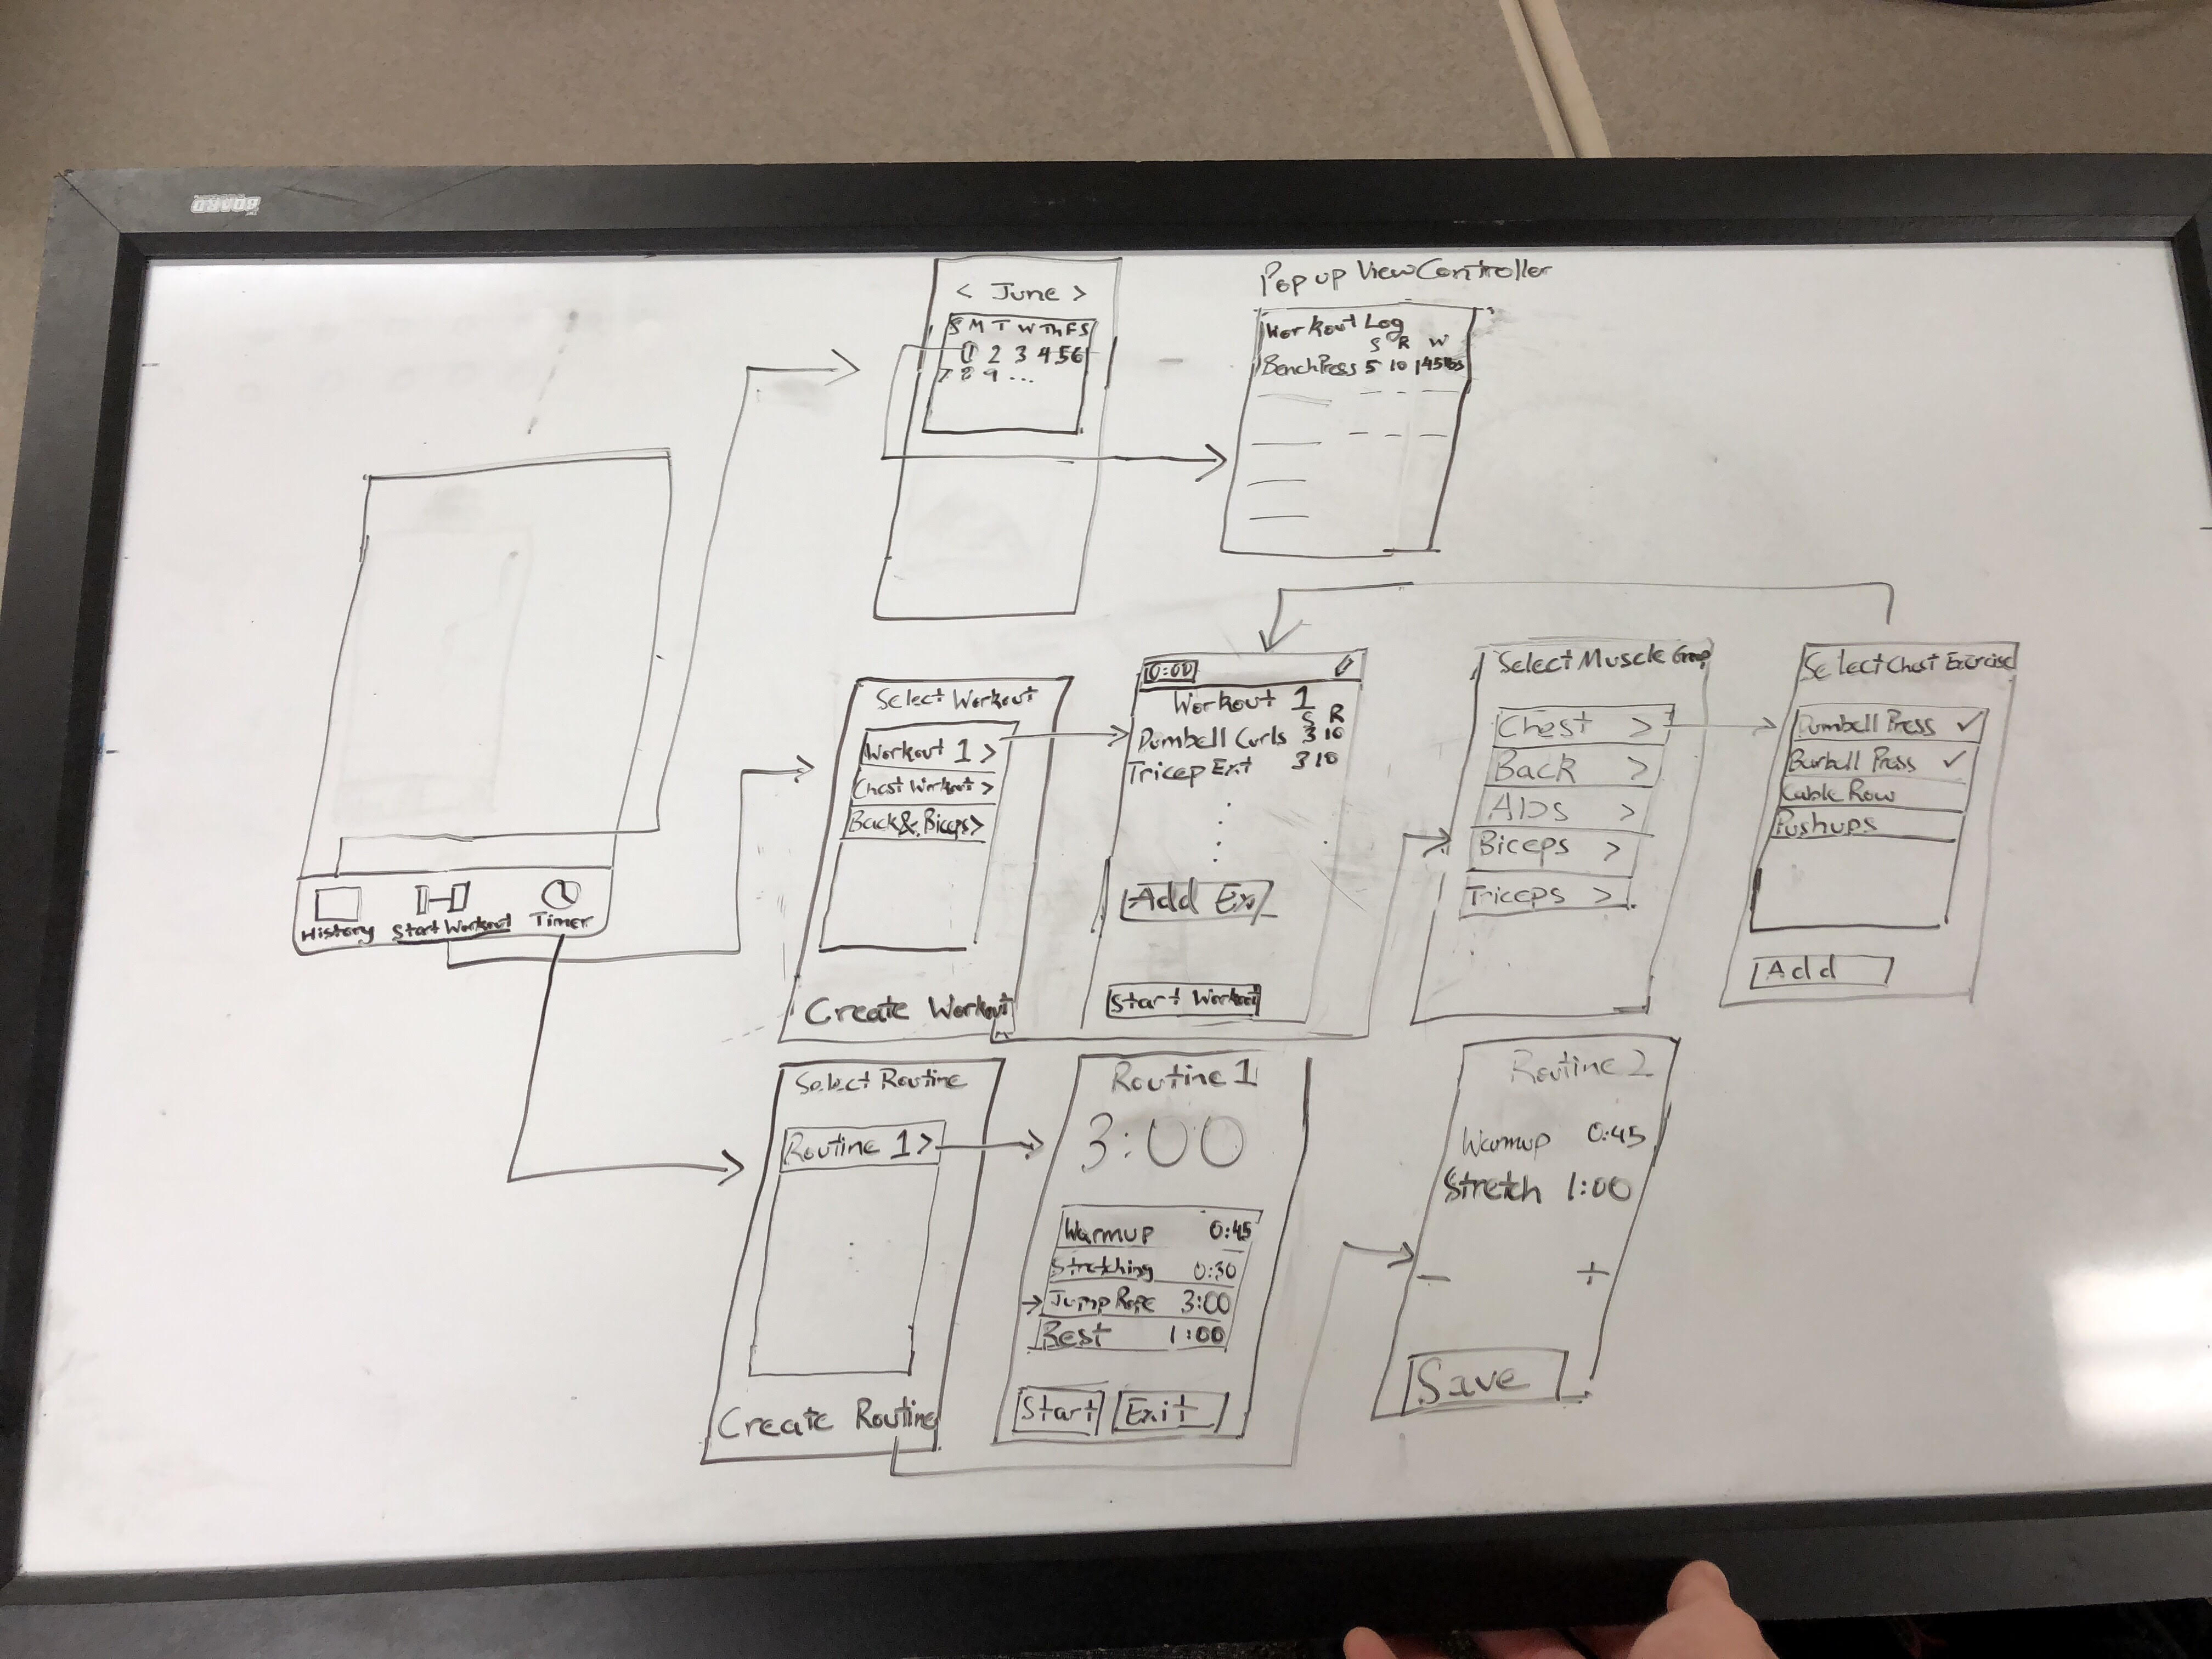 BOARD
History
Start Workout
Timer
< June >
S M T W Th F S
1 2 3 4 5 6
7 8 9 ...
Pop up View Controller
Workout Log
S R W
Bench Press 5 10 145lbs
Select Workout
Workout 1 >
Chest Workout >
Back & Biceps >
Create Workout
0:00
Workout 1
S R
Dumbell Curls 3 10
Tricep Ext 3 10
Add Ex
Start Workout
Select Muscle Group
Chest >
Back >
Abs >
Biceps >
Triceps >
Select Chest Exercise
Dumbell Press ✓
Barbell Press ✓
Cable Row
Pushups
Add
Select Routine
Routine 1 >
Create Routine
Routine 1
3:00
Warmup 0:45
Stretching 0:30
→ Jump Rope 3:00
Rest 1:00
Start
Exit
Routine 2
Warmup 0:45
Stretch 1:00
− +
Save